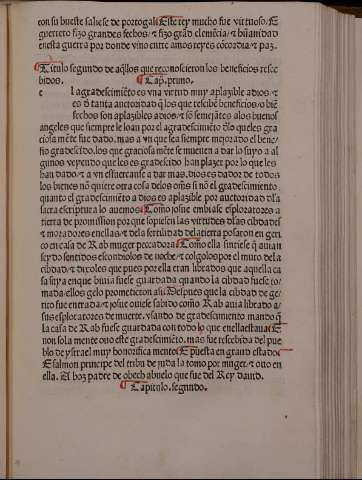 con su hueste saliese de portogal. Este rey mucho fue virtuoso. E
guerrero fizo grandes fechos. ⁊ fizo grãd clemẽcia/ ⁊ hũanidad
enesta guerra por donde vino entre amos reyes cõcordia/ ⁊ paz.
¶ Titulo segundo de aq̃llos que reconoscieron los beneficios rescebidos
bidos. ¶ Cap. primo.
e l agradescimiẽto es vna virtud muy aplazible a dios/ ⁊
es ð tanta auctoridad q̃ los que rescibẽ beneficios/ o biẽ
fechos son aplazibles a dios/ ⁊ sõ semejãtes a los buenos
angeles que siempre le loan por el agradescimiẽto ðlo que les gra
ciosa mẽte fue dado. mas a vn que sea siempre mejorado el bene/
fiçio gradescido. los que graciosa mẽte se mueuen a dar lo suyo a al
gunos veyendo que les es gradescido han plazer por lo que les
han dado/ ⁊ a vn esfuerçanse a dar mas. dios es dador de todos
los bienes nõ quiere otra cosa delos om̃s si nõ el gradescimiento.
quanto el gradescimiẽto a dios es aplazible por auctoridad ðla
sacra escriptura lo auemos. ¶ Como josue embiase esploratores a
tierra de promission por que sopiesen las virtudes ðlas cibdades
⁊ moradores enellas/ ⁊ dela fertilidad dela tierra posaron en geri
co en casa de Raab muger peccadora. ¶ Como ella sintiese q̃ auian
seydo sentidos escondiolos de noche/ ⁊ colgolos por el muro dela
cibdad/ ⁊ dixoles que pues por ella eran librados que aquella ca
sa suya en que biuia fuese guardada quando la cibdad fuese to
mada/ ellos gelo prometieron asi. ¶ Despues que la cibdad de ge/
rico fue entrada/ ⁊ josue ouiese sabido como Raab auia librado a/
sus esploratores de muerte. vsando de gradescimiento mando q̃
la casa de Raab fuese guardada con todo lo que enella estaua. ¶ E
non sola mente ouo este gradescimiẽto. mas fue rescebida del pue
blo de ysrael muy honorifica mente. E puesta en grand estado.
E salmon principe del tribu de juda la tomo por muger. ⁊ ouo en
ella. A boz padre de obech abuelo que fue del Rey dauid.
¶ Capitulo. segundo.